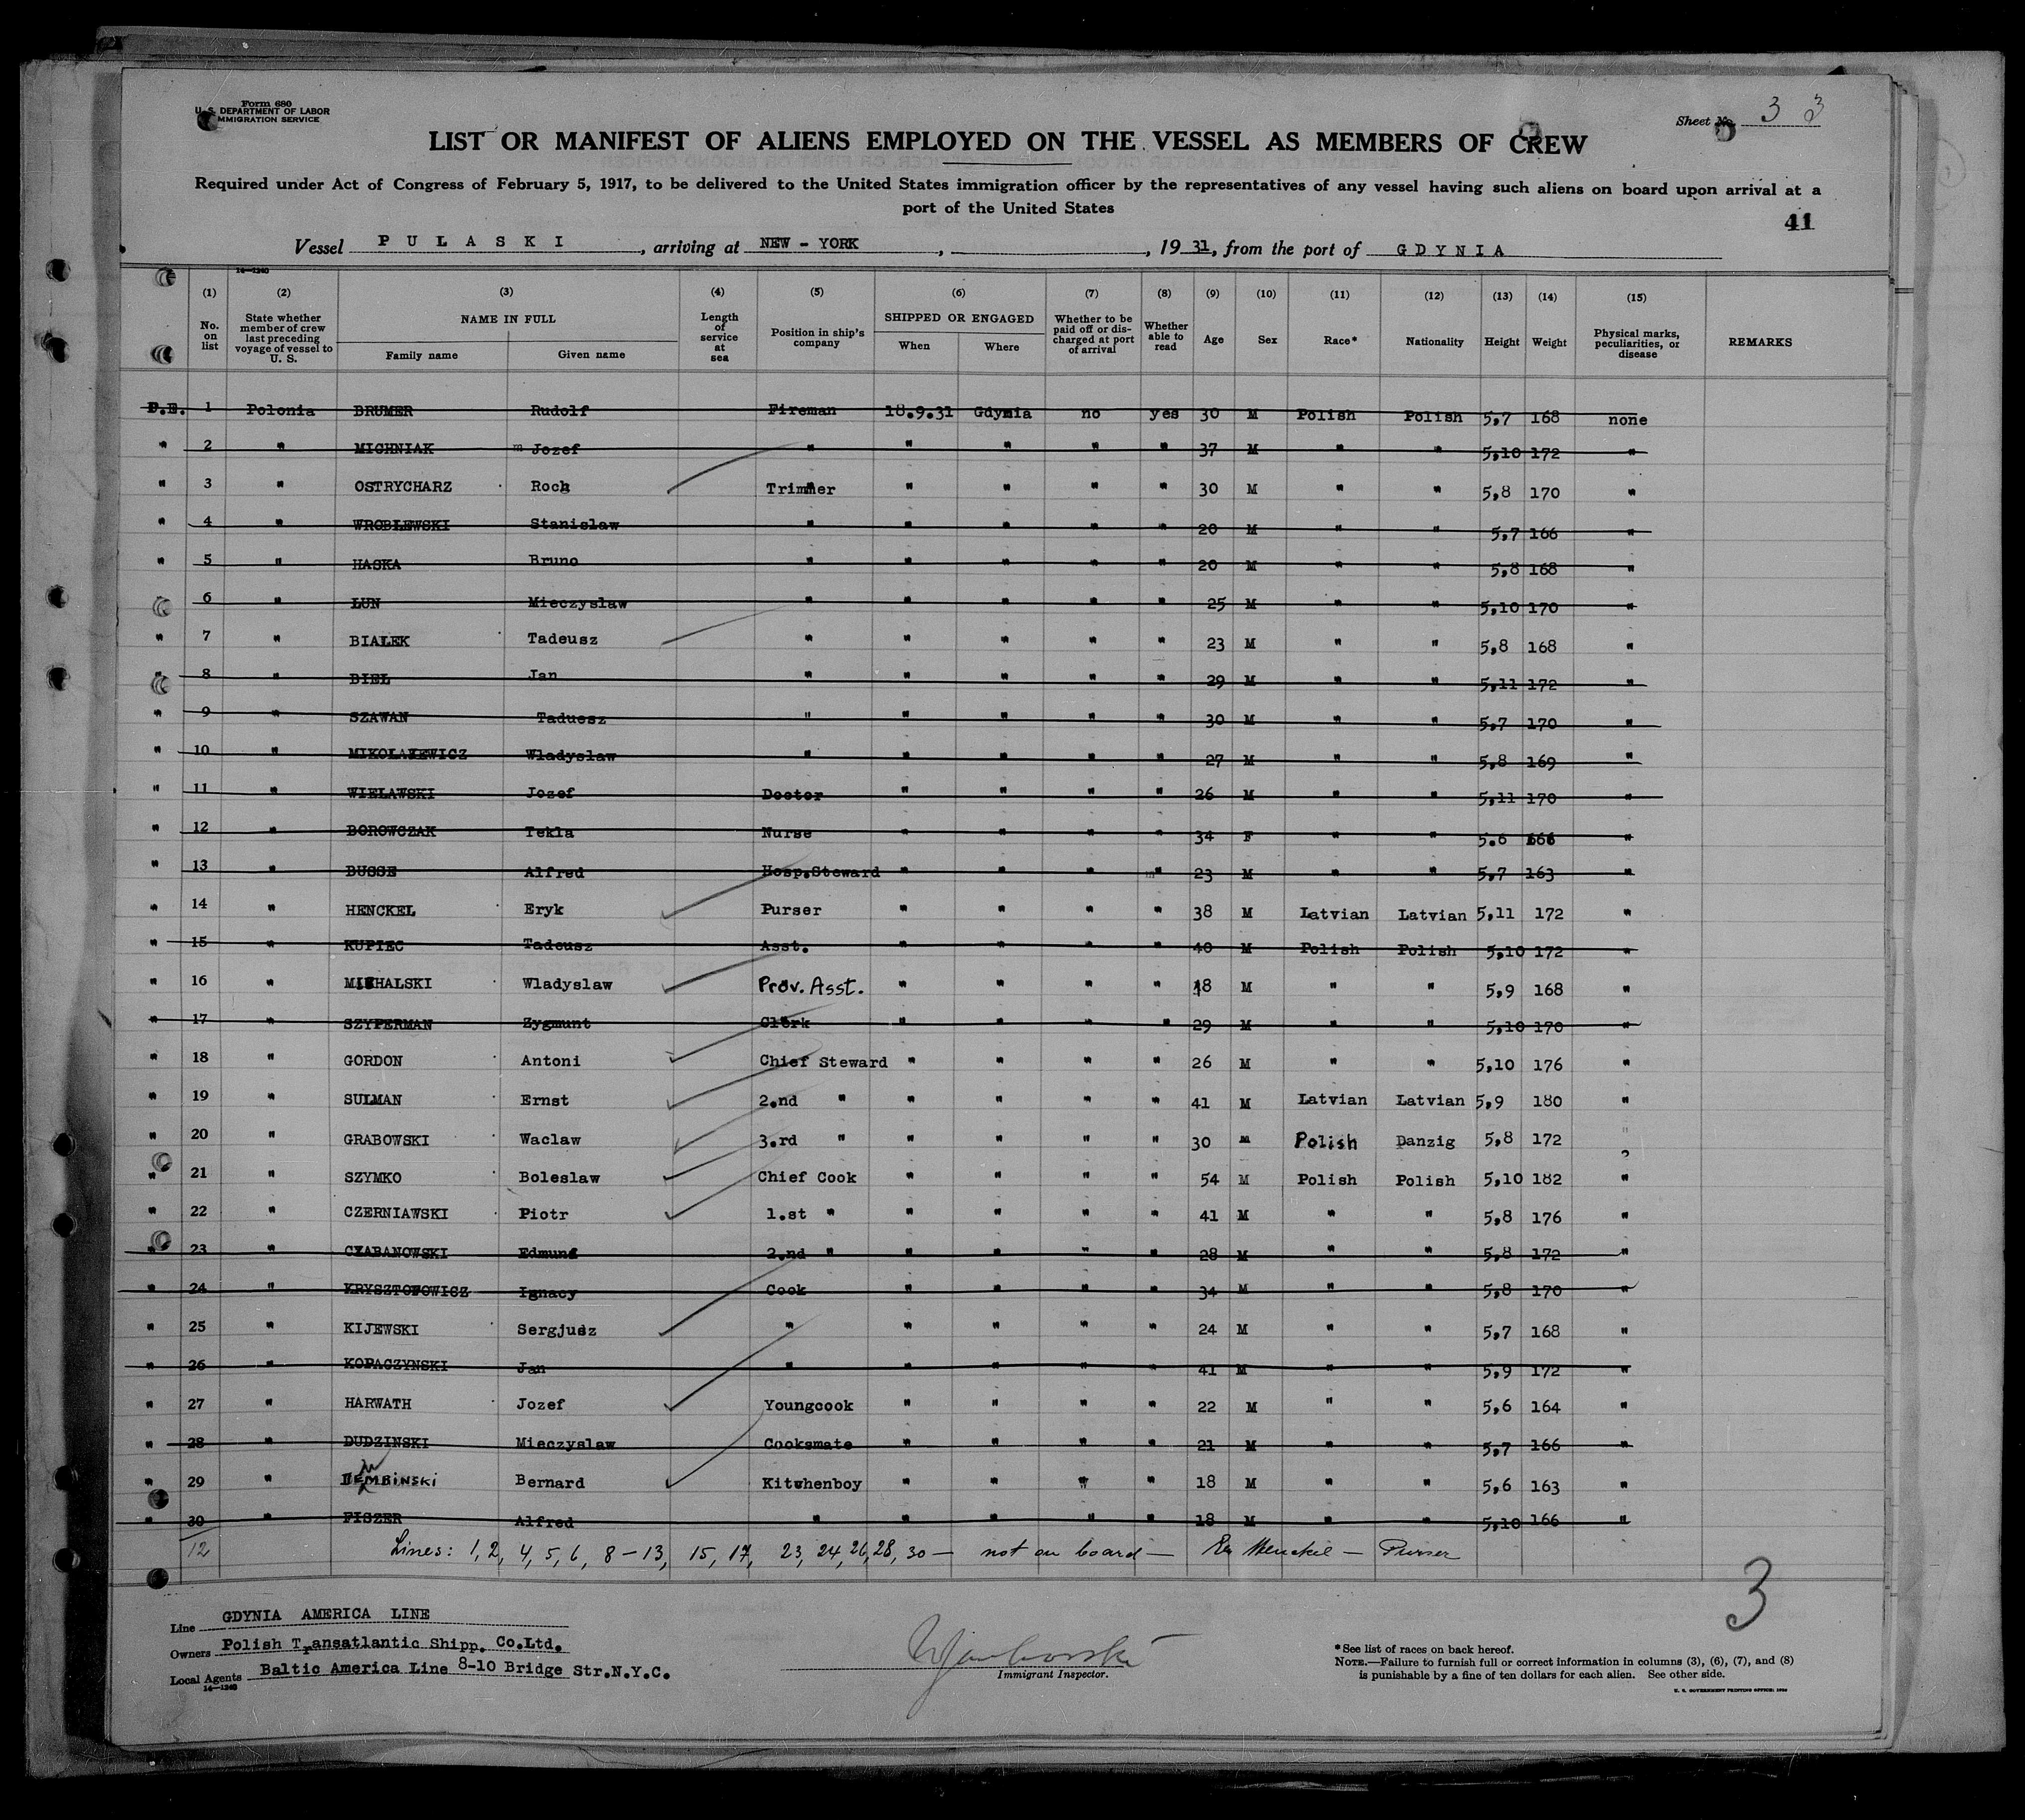 Form 680
U. S. DEPARTMENT OF LABOR
IMMIGRATION SERVICE
Sheet No. 3 3
LIST OR MANIFEST OF ALIENS EMPLOYED ON THE VESSEL AS MEMBERS OF CREW
Required under Act of Congress of February 5, 1917, to be delivered to the United States immigration officer by the representatives of any vessel having such aliens on board upon arrival at a
port of the United States
41
Vessel PULASKI, arriving at NEW - YORK, , 1931, from the port of GDYNIA
14—1240
(1) (2) (3) (4) (5) (6) (7) (8) (9) (10) (11) (12) (13) (14) (15)
No. on list State whether member of crew last preceding voyage of vessel to U. S. NAME IN FULL Family name Given name Length of service at sea Position in ship's company SHIPPED OR ENGAGED When Where Whether to be paid off or discharged at port of arrival Whether able to read Age Sex Race* Nationality Height Weight Physical marks, peculiarities, or disease REMARKS
D.E. 1 Polonia BRUMER Rudolf Fireman 18.9.31 Gdynia no yes 30 M Polish Polish 5,7 168 none
" 2 " MICHNIAK m Jozef " " " " " 37 M " " 5,10 172 "
" 3 " OSTRYCHARZ Roch Trimmer " " " " 30 M " " 5,8 170 "
" 4 " WROBLEWSKI Stanislaw " " " " " 20 M " " 5,7 166 "
" 5 " HASKA Bruno " " " " " 20 M " " 5,8 168 "
" 6 " LUN Mieczyslaw " " " " " 25 M " " 5,10 170 "
" 7 " BIALEK Tadeusz " " " " " 23 M " " 5,8 168 "
" 8 " BIEL Jan " " " " " 29 M " " 5,11 172 "
" 9 " SZAWAN Taduesz " " " " " 30 M " " 5,7 170 "
" 10 " MIKOLAJEWICZ Wladyslaw " " " " " 27 M " " 5,8 169 "
" 11 " WIELAWSKI Jozef Doctor " " " " 26 M " " 5,11 170 "
" 12 " BOROWCZAK Tekla Nurse " " " " 34 F " " 5.6 166 "
" 13 " BUSSE Alfred Hosp.Steward " " " " 23 M " " 5,7 163 "
" 14 " HENCKEL Eryk Purser " " " " 38 M Latvian Latvian 5,11 172 "
" 15 " KUPIEC Tadeusz Asst. " " " " 40 M Polish Polish 5,10 172 "
" 16 " MICHALSKI Wladyslaw Prov. Asst. " " " " 18 M " " 5,9 168 "
" 17 " SZYPERMAN Zygmunt Clerk " " " " 29 M " " 5,10 170 "
" 18 " GORDON Antoni Chief Steward " " " " 26 M " " 5,10 176 "
" 19 " SULMAN Ernst 2.nd " " " " " 41 M Latvian Latvian 5,9 180 "
" 20 " GRABOWSKI Waclaw 3.rd " " " " " 30 M Polish Danzig 5,8 172 "
" 21 " SZYMKO Boleslaw Chief Cook " " " " 54 M Polish Polish 5,10 182 "
" 22 " CZERNIAWSKI Piotr 1.st " " " " " 41 M " " 5,8 176 "
" 23 " CZABANOWSKI Edmund 2.nd " " " " " 28 M " " 5,8 172 "
" 24 " KRYSZTOFOWICZ Ignacy Cook " " " " 34 M " " 5,8 170 "
" 25 " KIJEWSKI Sergjusz " " " " " 24 M " " 5,7 168 "
" 26 " KOPACZYNSKI Jan " " " " " 41 M " " 5,9 172 "
" 27 " HARWATH Jozef Youngcook " " " " 22 M " " 5,6 164 "
" 28 " DUDZINSKI Mieczyslaw Cooksmate " " " " 21 M " " 5,7 166 "
" 29 " DEMBINSKI Bernard Kitchenboy " " " " 18 M " " 5,6 163 "
" 30 " FISZER Alfred " " " " " 18 M " " 5,10 166 "
12 Lines: 1, 2, 4, 5, 6, 8 – 13, 15, 17, 23, 24, 26, 28, 30 — not on board — Er Henckel — Purser
3
Line GDYNIA AMERICA LINE
Owners Polish Transatlantic Shipp. Co.Ltd.
Local Agents Baltic America Line 8-10 Bridge Str.N.Y.C.
14—1240
Immigrant Inspector.
*See list of races on back hereof.
NOTE.—Failure to furnish full or correct information in columns (3), (6), (7), and (8)
is punishable by a fine of ten dollars for each alien. See other side.
U. S. GOVERNMENT PRINTING OFFICE: